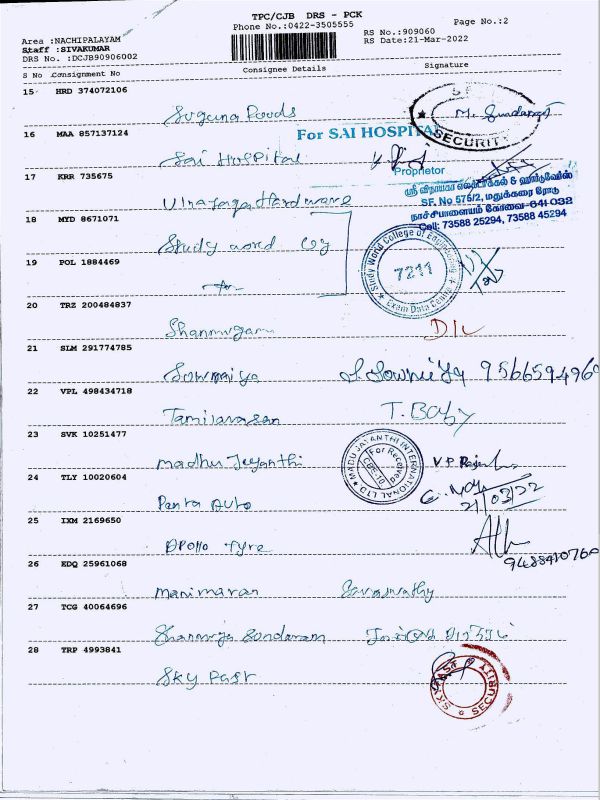 TPC/CJB DRS - PCK
Phone No.:0422-3505555
Page No.:2
Area :NACHIPALAYAM
RS No.:909060
Staff :SIVAKUMAR
RS Date:21-Mar-2022
DRS No. :DCJB90906002
S No Consignment No Consignee Details Signature
15 HRD 374072106
Suguna Foods
SECURITY
16 MAA 857137124
For SAI HOSPITAL
Sai Hospital
Proprietor
17 KRR 735675
ஸ்ரீ விநாயகா எலக்ட்ரிக்கல் & ஹார்டுவேர்ஸ்
SF. No 575/2, மதுக்கரை ரோடு
நாச்சிபாளையம் கோவை-641 032
Cell: 73588 25294, 73588 45294
Hardware
18 MYD 8671071
Study World College of Engineering
7211
Exam Data Centre
Study world
19 POL 1884469
20 TRZ 200484837
Shanmugam
21 SLM 291774785
Sowmiya
22 VPL 498434718
Tamilarasan T. Baby
23 SVK 10251477
MADU JAYANTHI INTERNATIONAL LTD
For Received
CBE-10
Madhu Jeyanthi
24 TLY 10020604
Penta Auto
21/03/22
25 IXM 2169650
Apollo Tyre
26 KDQ 25961068
Manimaran Saraswathy
27 TCG 40064696
28 TRP 4993841
Sky Fast
SKY FAST SECURITY